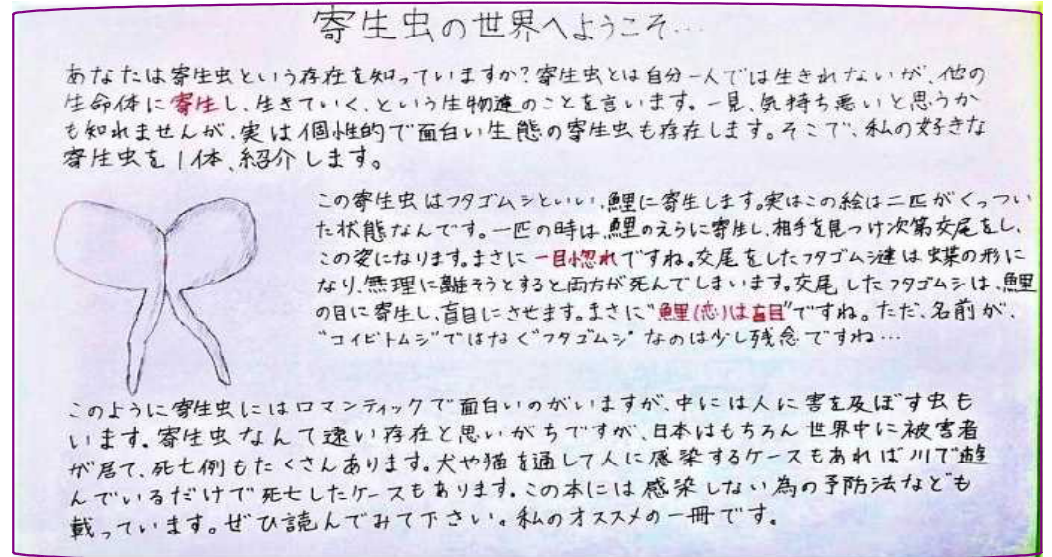 寄生虫の世界へようこそ…
あなたは寄生虫という存在を知っていますか?寄生虫とは自分一人では生きれないが、他の
生命体に寄生し、生きていく、という生物達のことを言います。一見、気持ち悪いと思うか
も知れませんが、実は個性的で面白い生態の寄生虫も存在します。そこで、私の好きな
寄生虫を1体、紹介します。
この寄生虫はフタゴムシといい、鯉に寄生します。実はこの絵は二匹がくっつい
た状態なんです。一匹の時は、鯉のえらに寄生し、相手を見つけ次第交尾をし、
この姿になります。まさに一目惚れですね。交尾をしたフタゴムシ達は蝶の形に
なり、無理に離そうとすると両方が死んでしまいます。交尾したフタゴムシは、鯉
の目に寄生し、盲目にさせます。まさに"鯉(恋)は盲目"ですね。ただ、名前が、
"コイビトムシ"ではなく"フタゴムシ"なのは少し残念ですね…
このように寄生虫にはロマンティックで面白いのがいますが、中には人に害を及ぼす虫も
います。寄生虫なんて遠い存在と思いがちですが、日本はもちろん世界中に被害者
が居て、死亡例もたくさんあります。犬や猫を通して人に感染するケースもあれば川で遊
んでいるだけで死亡したケースもあります。この本には感染しない為の予防法なども
載っています。ぜひ読んでみて下さい。私のオススメの一冊です。